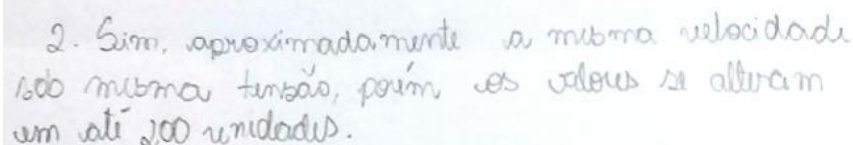 2. Sim, aproximadamente a mesma velocidade
sob mesma tensão, porém os valores se alteram
em até 200 unidades.